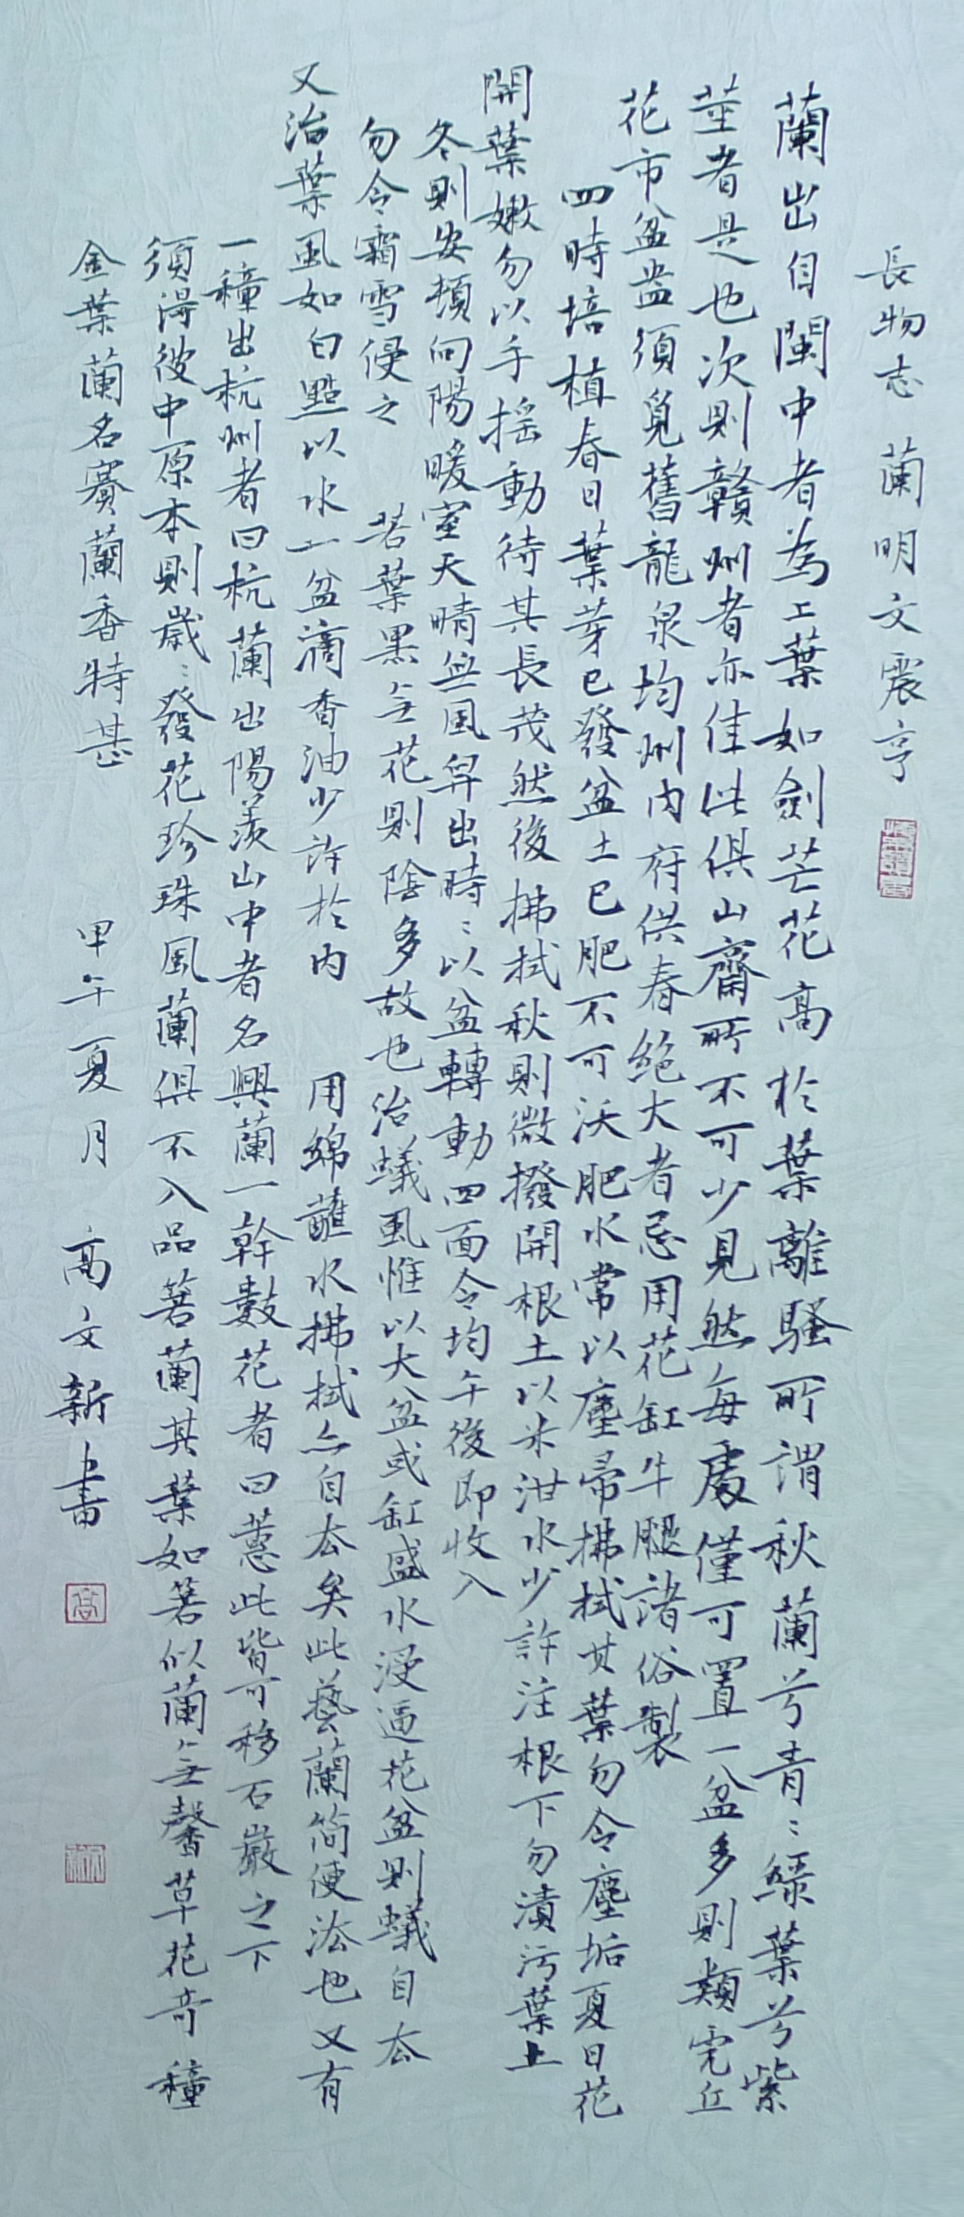 長物志 蘭 明 文震亨
蘭出自閩中者為上葉如劍芒花高於葉離騷所謂秋蘭兮青〻綠葉兮紫
莖者是也次則贛州者亦佳此俱山齋所不可少見然每處僅可置一盆多則類虎丘
花市盆盎須覓舊龍泉均州內府供春絕大者忌用花缸牛腿諸俗製
四時培植春日葉芽已發盆土已肥不可沃肥水常以塵帚拂拭其葉勿令塵垢夏日花
開葉嫩勿以手搖動待其長茂然後拂拭秋則微撥開根土以米泔水少許注根下勿漬污葉上
冬則安頓向陽暖室天晴無風舁出時〻以盆轉動四面令均午後即收入
勿令霜雪侵之 若葉黑無花則陰多故也治蟻虱惟以大盆或缸盛水浸逼花盆則蟻自去
又治葉虱如白點以水一盆滴香油少許於內 用綿蘸水拂拭亦自去矣此藝蘭簡便法也又有
一種出杭州者曰杭蘭出陽羨山中者名興蘭一幹數花者曰蕙此皆可移石巖之下
須得彼中原本則歲〻發花珍珠風蘭俱不入品箬蘭其葉如箬似蘭無馨草花奇種
金葉蘭名賽蘭香特甚 甲午夏月 高文新書
高